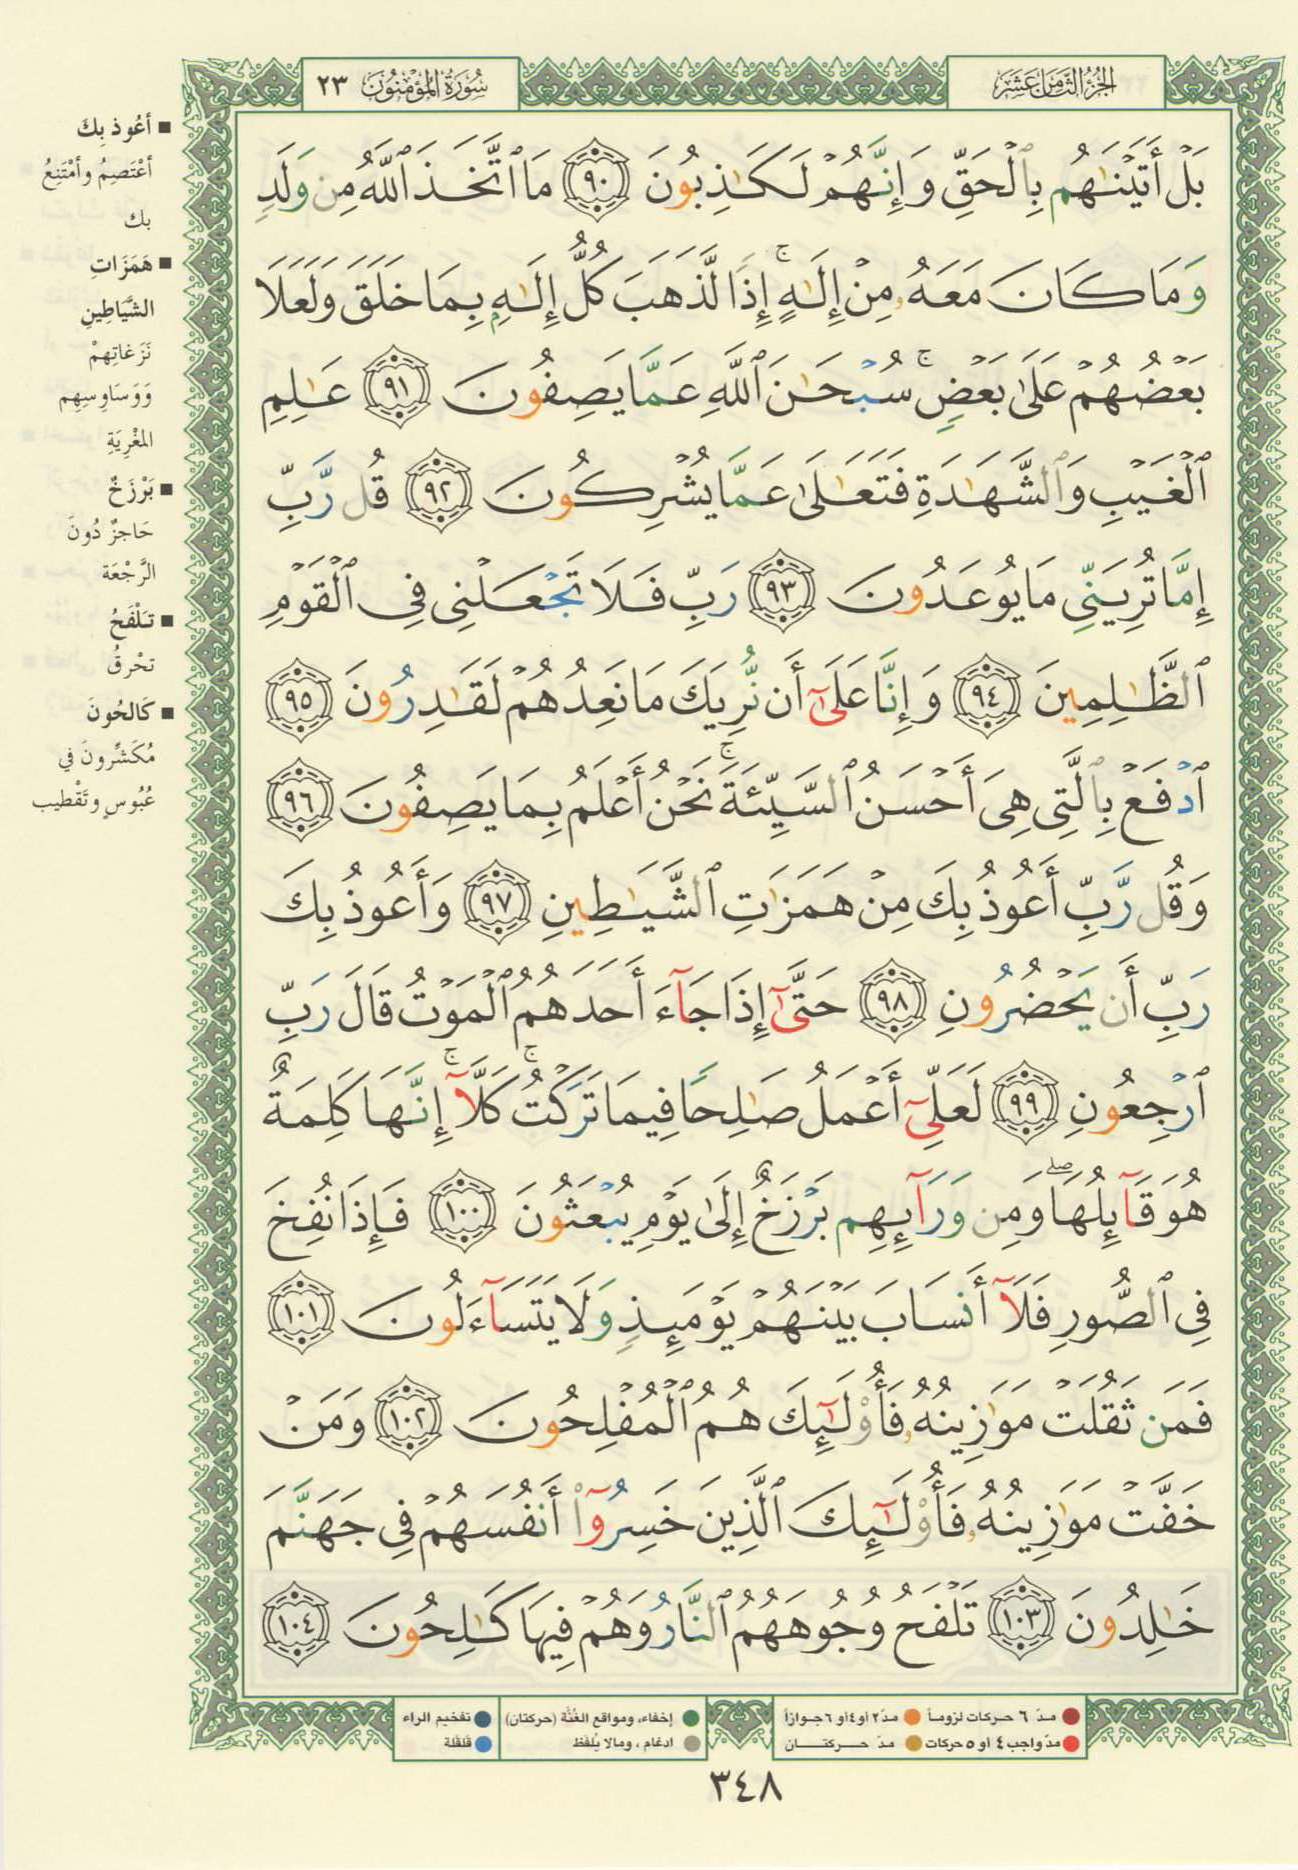 الجزء الثامن عشر
سورة المؤمنون ٢٣
بَلْ أَتَيْنَٰهُم بِٱلْحَقِّ وَإِنَّهُمْ لَكَٰذِبُونَ ٩٠ مَا ٱتَّخَذَ ٱللَّهُ مِن وَلَدٍ
وَمَا كَانَ مَعَهُۥ مِنْ إِلَٰهٍ ۚ إِذًا لَّذَهَبَ كُلُّ إِلَٰهٍۭ بِمَا خَلَقَ وَلَعَلَا
بَعْضُهُمْ عَلَىٰ بَعْضٍ ۚ سُبْحَٰنَ ٱللَّهِ عَمَّا يَصِفُونَ ٩١ عَٰلِمِ
ٱلْغَيْبِ وَٱلشَّهَٰدَةِ فَتَعَٰلَىٰ عَمَّا يُشْرِكُونَ ٩٢ قُل رَّبِّ
إِمَّا تُرِيَنِّى مَا يُوعَدُونَ ٩٣ رَبِّ فَلَا تَجْعَلْنِى فِى ٱلْقَوْمِ
ٱلظَّٰلِمِينَ ٩٤ وَإِنَّا عَلَىٰٓ أَن نُّرِيَكَ مَا نَعِدُهُمْ لَقَٰدِرُونَ ٩٥
ٱدْفَعْ بِٱلَّتِى هِىَ أَحْسَنُ ٱلسَّيِّئَةَ ۚ نَحْنُ أَعْلَمُ بِمَا يَصِفُونَ ٩٦
وَقُل رَّبِّ أَعُوذُ بِكَ مِنْ هَمَزَٰتِ ٱلشَّيَٰطِينِ ٩٧ وَأَعُوذُ بِكَ
رَبِّ أَن يَحْضُرُونِ ٩٨ حَتَّىٰٓ إِذَا جَآءَ أَحَدَهُمُ ٱلْمَوْتُ قَالَ رَبِّ
ٱرْجِعُونِ ٩٩ لَعَلِّىٓ أَعْمَلُ صَٰلِحًا فِيمَا تَرَكْتُ ۚ كَلَّآ ۚ إِنَّهَا كَلِمَةٌ
هُوَ قَآئِلُهَا ۖ وَمِن وَرَآئِهِم بَرْزَخٌ إِلَىٰ يَوْمِ يُبْعَثُونَ ١٠٠ فَإِذَا نُفِخَ
فِى ٱلصُّورِ فَلَآ أَنسَابَ بَيْنَهُمْ يَوْمَئِذٍ وَلَا يَتَسَآءَلُونَ ١٠١
فَمَن ثَقُلَتْ مَوَٰزِينُهُۥ فَأُو۟لَٰٓئِكَ هُمُ ٱلْمُفْلِحُونَ ١٠٢ وَمَنْ
خَفَّتْ مَوَٰزِينُهُۥ فَأُو۟لَٰٓئِكَ ٱلَّذِينَ خَسِرُوٓا۟ أَنفُسَهُمْ فِى جَهَنَّمَ
خَٰلِدُونَ ١٠٣ تَلْفَحُ وُجُوهَهُمُ ٱلنَّارُ وَهُمْ فِيهَا كَٰلِحُونَ ١٠٤
■ أعُوذ بِكَ
أعْتَصِمُ وأمْتَنِعُ
بك
■ هَمَزَاتِ
الشَّيَاطِينِ
نَزَغاتِهِمْ
وَوَسَاوِسِهِم
المغْرِيَةِ
■ بَرْزَخٌ
حَاجزٌ دُونَ
الرَّجْعَة
■ تَلْفَحُ
تحْرقُ
■ كَالحُونَ
مُكَشِّرونَ في
عُبُوسٍ وتَقْطيب
مدّ ٦ حركات لزوماً
مدّ ٢ أو ٤ أو ٦ جوازاً
مدّ واجب ٤ أو ٥ حركات
مدّ حركتان
إخفاء، ومواقع الغُنَّة (حركتان)
ادغام ، ومالا يُلفَظ
تفخيم الراء
قلقلة
٣٤٨